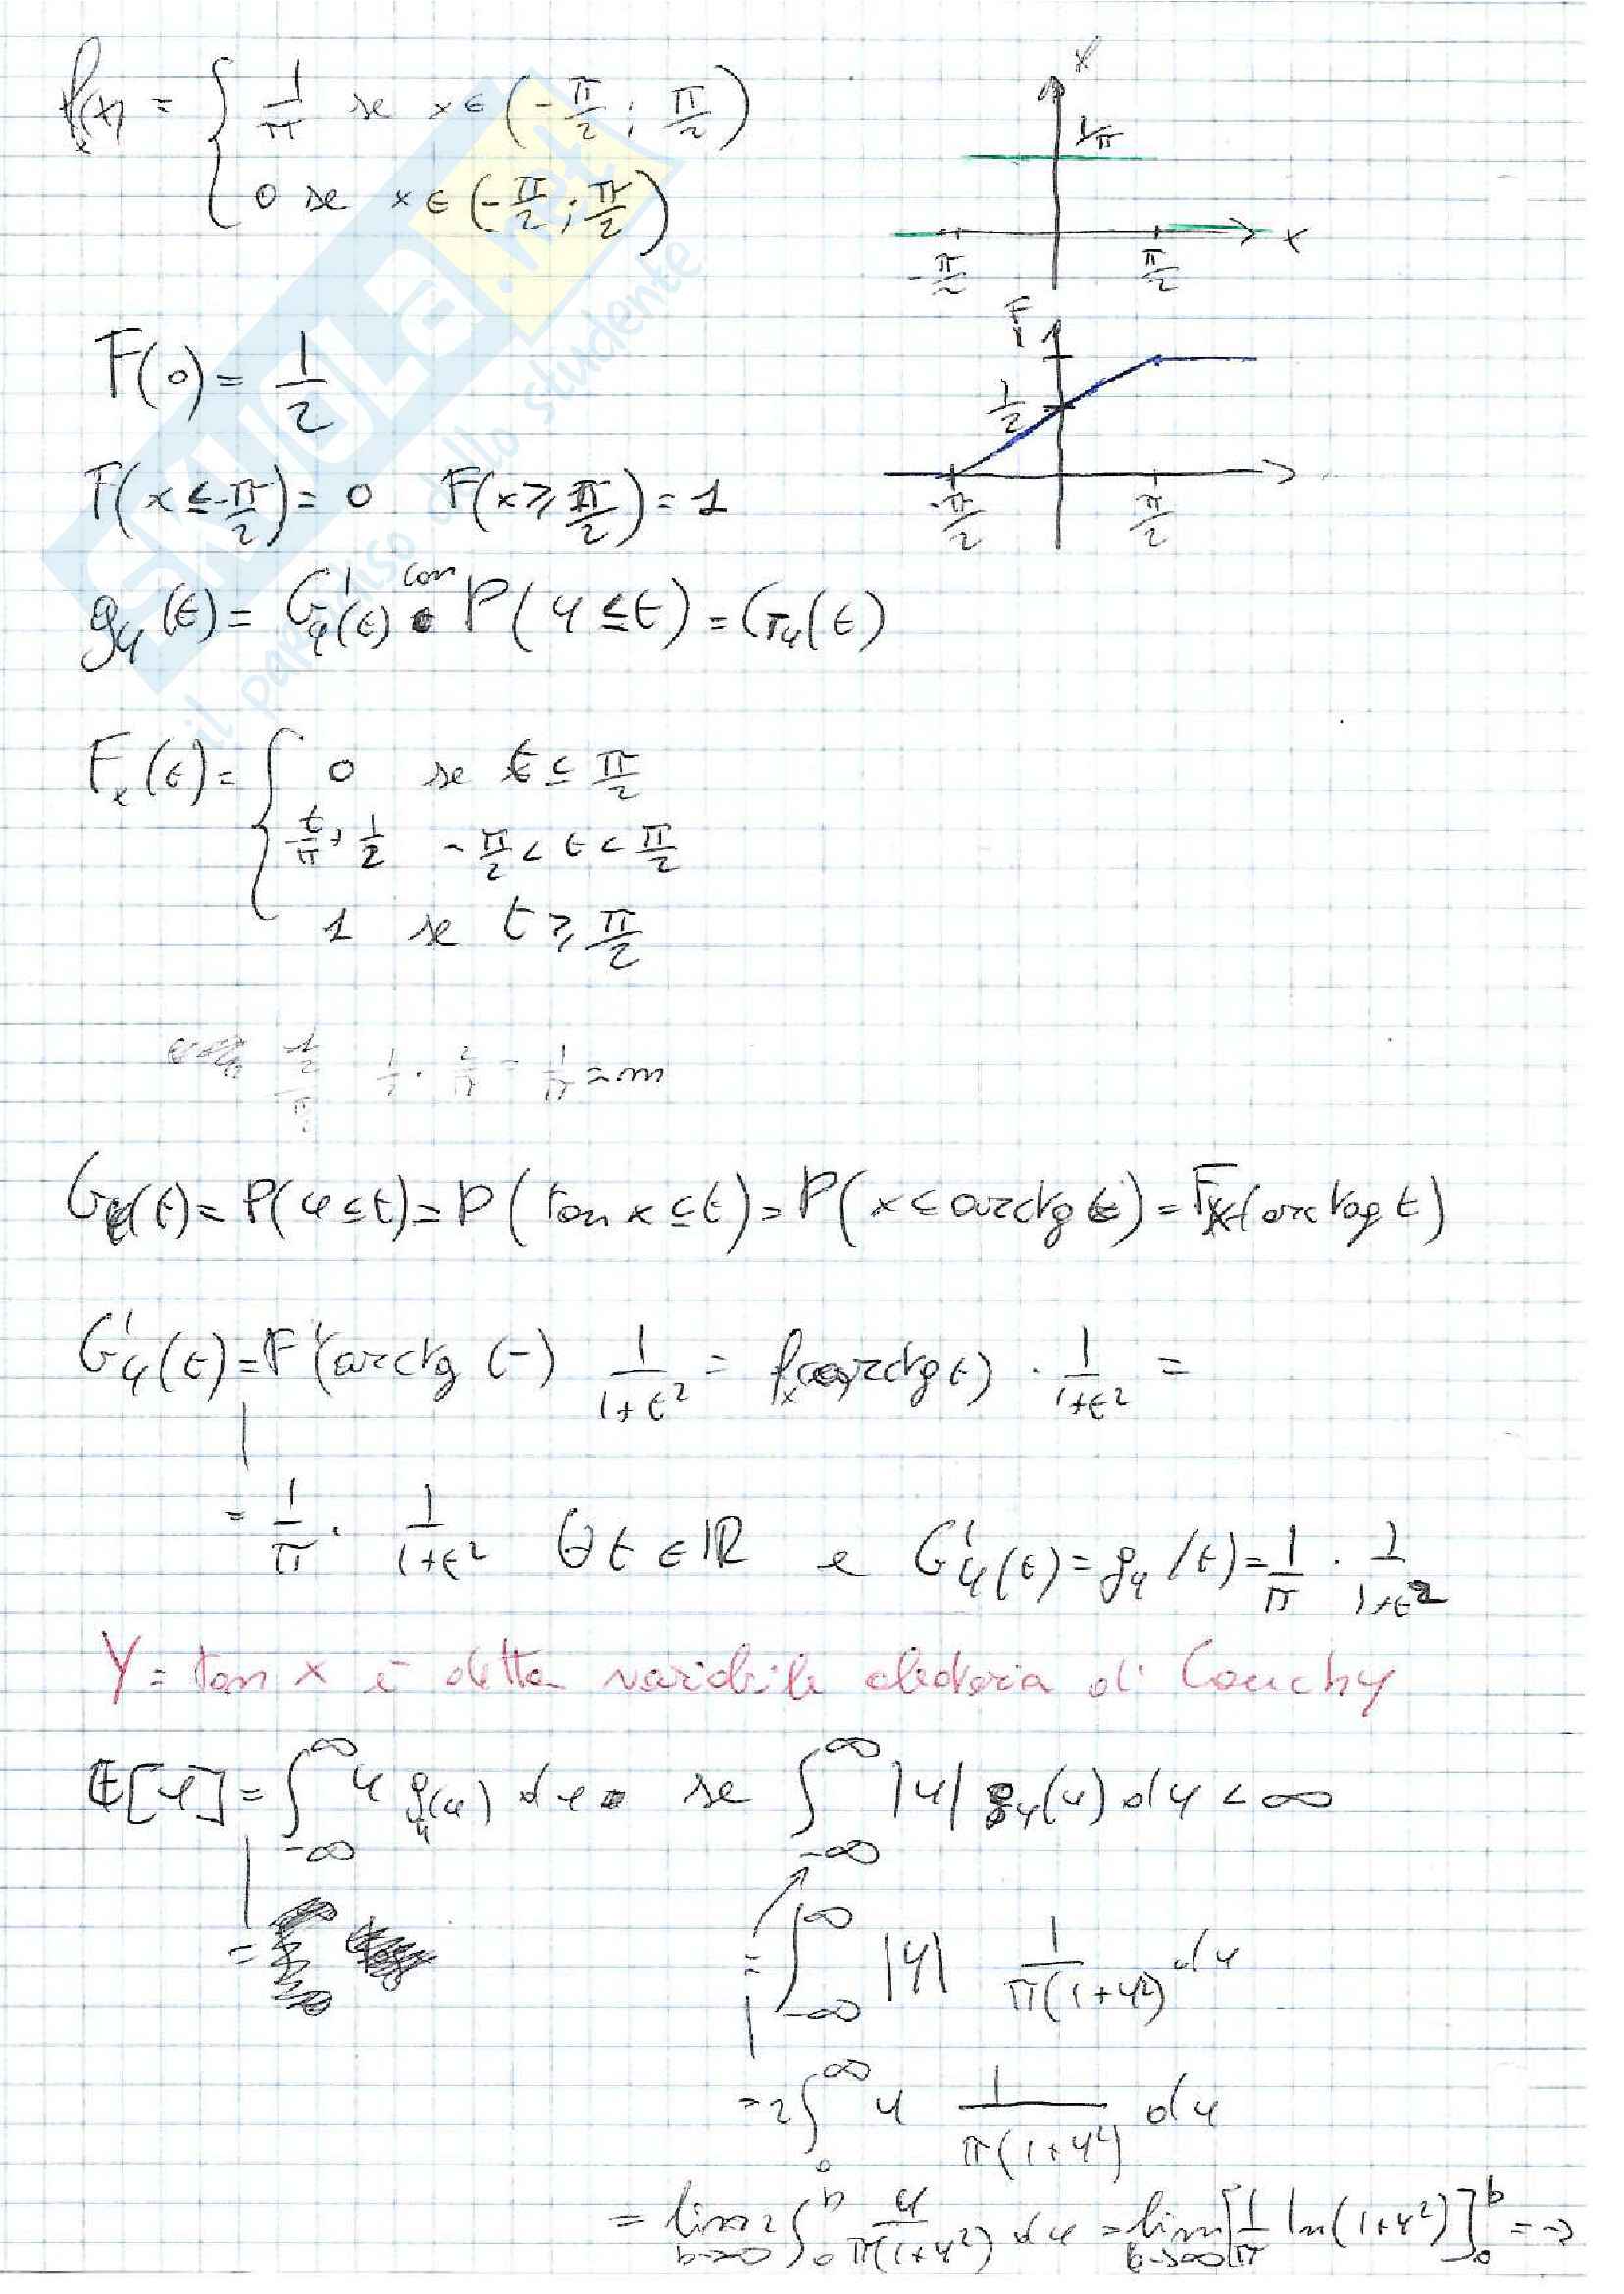 fₓ(x) = { 1/π se x ∈ (-π/2 ; π/2)
0 se x ∈ (-π/2 ; π/2)
1/π
-π/2 π/2 x
F(0) = 1/2
F
1
1/2
-π/2 π/2
F(x ≤ -π/2) = 0 F(x ≥ π/2) = 1
g_y(t) = G'_y(t) con P(y ≤ t) = G_y(t)
Fₓ(t) = { 0 se t ≤ π/2
t/π + 1/2 -π/2 < t < π/2
1 se t ≥ π/2
1/2 · 2/π = 1/π = m
G_y(t) = P(y ≤ t) = P(tan x ≤ t) = P(x ≤ arctg t) = Fₓ(arctag t)
G'_y(t) = F'(arctg t) 1/(1+t²) = fₓ(arctg t) · 1/(1+t²) =
= 1/π · 1/(1+t²) ∀t ∈ ℝ e G'_y(t) = g_y(t) = 1/π · 1/(1+t²)
Y = tan x è detta variabile aleatoria di Cauchy
E[y] = ∫_{-∞}^{∞} y g_y(y) dy se ∫_{-∞}^{∞} |y| g_y(y) dy < ∞
= ∫_{-∞}^{∞} |y| 1/(π(1+y²)) dy
= 2∫_0^∞ y 1/(π(1+y²)) dy
= lim_{b→∞} 2∫_0^b y/(π(1+y²)) dy = lim_{b→∞} [1/π ln(1+y²)]_0^b = →
SKUOLA.net
il paradiso dello studente